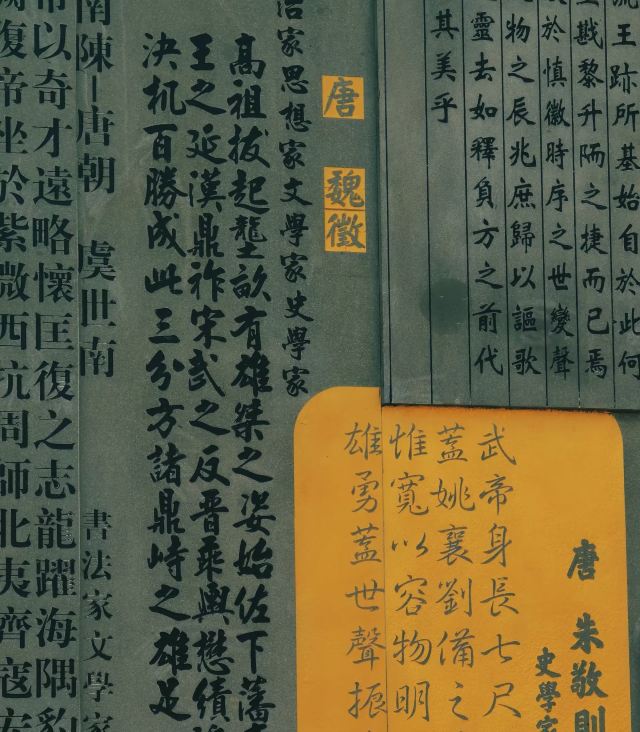 王跡所基始自於此何
戡黎升陑之捷而已焉
於慎徽時序之世變聲
物之辰兆庶歸以謳歌
靈去如釋負方之前代
其美乎
唐 朱敬則
史學家
武帝身長七尺
蓋姚襄劉備之
惟寬以容物明
雄勇蓋世聲振
唐 魏徵
家思想家文學家史學家
高祖拔起壟畝有雄桀之姿始佐下藩
王之延漢鼎祚宋武之反晉乘輿懋績
決机百勝成此三分方諸鼎峙之雄足
南陳—唐朝 虞世南 書法家文學家
帝以奇才遠略懷匡復之志龍躍海隅豹
復帝坐於紫微西抗周師北夷齊寇